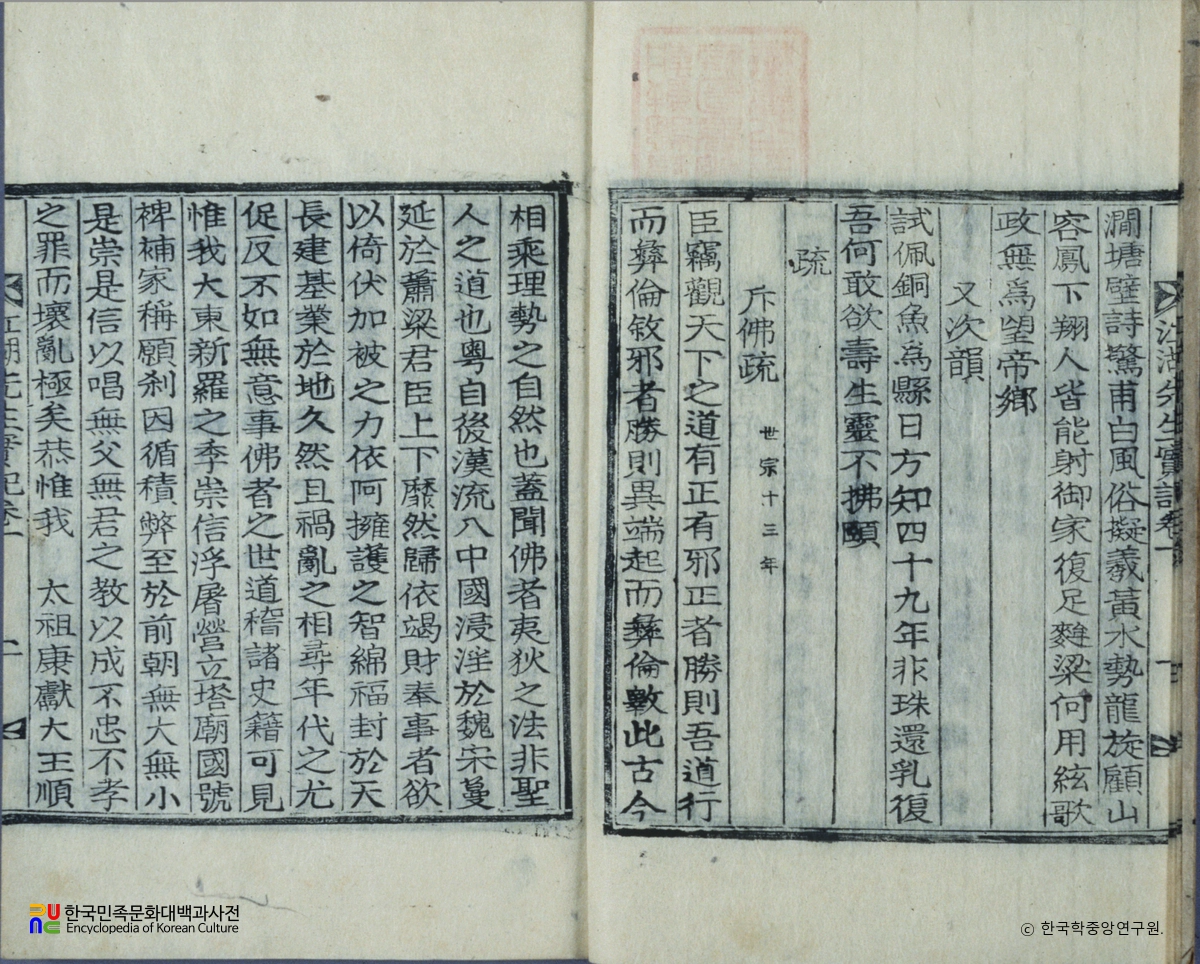 江湖先生實記卷一
澗塘壁詩驚甫白風俗擬羲黃水勢龍旋顧山
容鳳下翔人皆能射御家復足麰粱何用絃歌
政無爲望帝鄉
又次韻
試佩銅魚爲縣日方知四十九年非珠還乳復
吾何敢欲壽生靈不拂頤
疏
斥佛疏 世宗十三年
臣竊觀天下之道有正有邪正者勝則吾道行
而彝倫敘邪者勝則異端起而彝倫斁此古今
相乘理勢之自然也蓋聞佛者夷狄之法非聖
人之道也粤自後漢流入中國浸淫於魏宋蔓
延於蕭梁君臣上下靡然歸依竭財奉事者欲
以倚伏加被之力依阿擁護之智綿福封於天
長建基業於地久然且禍亂之相尋年代之尤
促反不如無意事佛者之世道稽諸史籍可見
惟我大東新羅之季崇信浮屠營立塔廟國號
裨補家稱願刹因循積弊至於前朝無大無小
是崇是信以唱無父無君之教以成不忠不孝
之罪而壞亂極矣恭惟我 太祖康獻大王順
江湖先生實記卷一
二
한국민족문화대백과사전
Encyclopedia of Korean Culture
ⓒ 한국학중앙연구원.